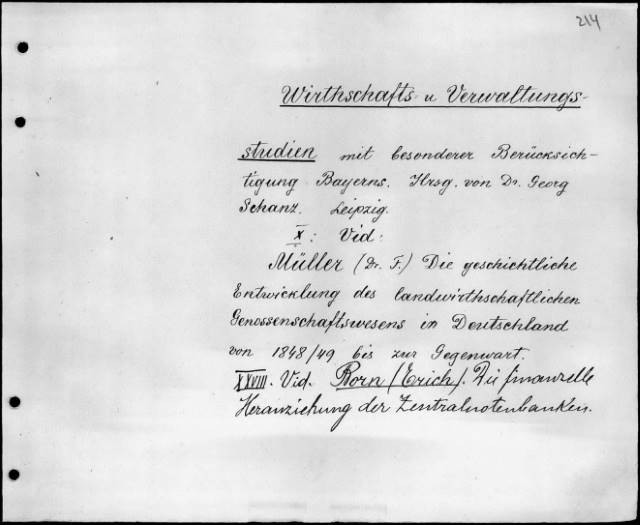 214
Wirthschafts- u Verwaltungs-
studien mit besonderer Berücksich-
tigung Bayerns. Hrsg. von Dr. Georg
Schanz. Leipzig.
X: Vid:
Müller (Dr. F.) Die geschichtliche
Entwicklung des landwirthschaftlichen
Genossenschaftswesens in Deutschland
von 1848/49 bis zur Gegenwart.
XXVIII. Vid. Born (Erich). Die finanzielle
Heranziehung der Zentralnotenbanken.